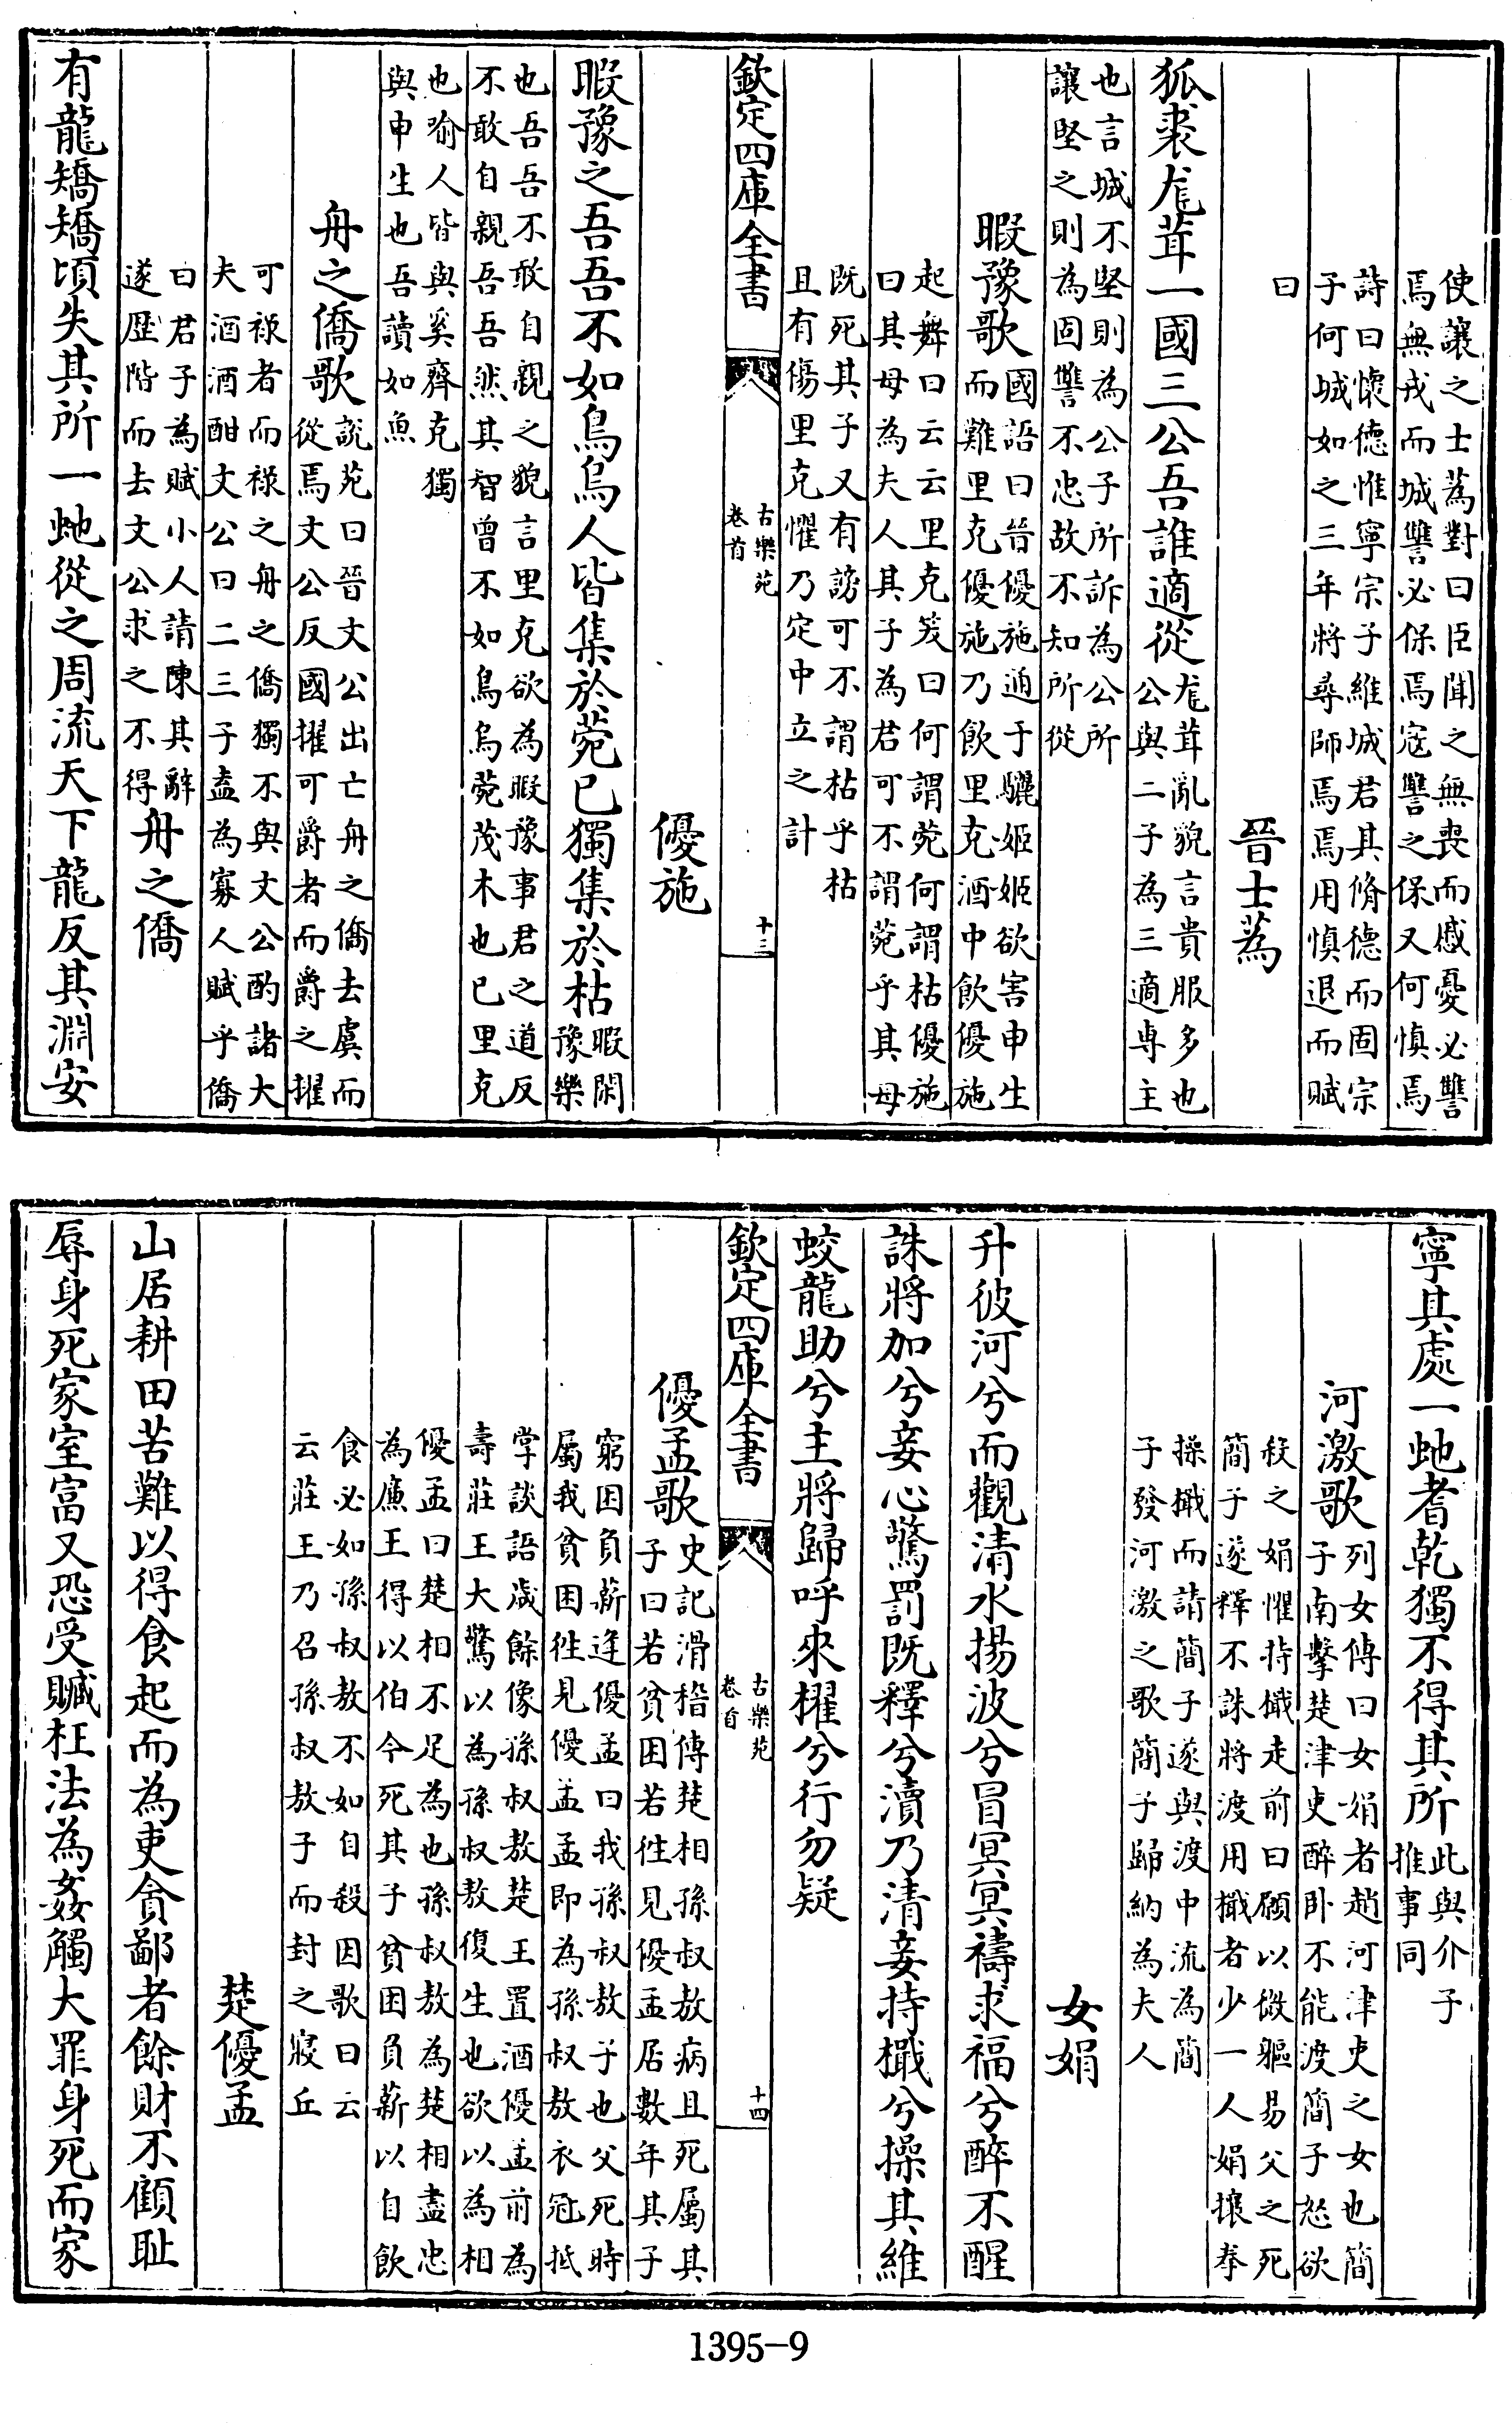 使讓之士蒍對曰臣聞之無喪而慼憂必讐
焉無戎而城讐必保焉寇讐之保又何慎焉
詩曰懷德惟寧宗子維城君其脩德而固宗
子何城如之三年將尋師焉焉用慎退而賦
曰
晉士蒍
狐裘尨茸一國三公吾誰適從
尨茸亂貌言貴服多也
公與二子為三適専主
也言城不堅則為公子所訴為公所
讓堅之則為固讐不忠故不知所從
暇豫歌
國語曰晉優施通于驪姬姬欲害申生
而難里克優施乃飲里克酒中飲優施
起舞曰云云里克笑曰何謂菀何謂枯優施
曰其母為夫人其子為君可不謂菀乎其母
既死其子又有謗可不謂枯乎枯
且有傷里克懼乃定中立之計
欽定四庫全書
古樂苑
卷首
十三
優施
暇豫之吾吾不如鳥烏人皆集於菀已獨集於枯
暇閑
豫樂
也吾吾不敢自親之貌言里克欲為暇豫事君之道反
不敢自親吾吾然其智曾不如鳥烏菀茂木也已里克
也喻人皆與奚齊克獨
與申生也吾讀如魚
舟之僑歌
說苑曰晉文公出亡舟之僑去虞而
從焉文公反國擢可爵者而爵之擢
可禄者而禄之舟之僑獨不與文公酌諸大
夫酒酒酣文公曰二三子盍為寡人賦乎僑
曰君子為賦小人請陳其辭
遂歷階而去文公求之不得
舟之僑
有龍矯矯頃失其所一虵從之周流天下龍反其淵安
寧其處一虵耆乾獨不得其所
此與介子
推事同
河激歌
列女傳曰女娟者趙河津吏之女也簡
子南擊楚津吏醉卧不能渡簡子怒欲
殺之娟懼持檝走前曰願以微軀易父之死
簡子遂釋不誅將渡用檝者少一人娟攘拳
操檝而請簡子遂與渡中流為簡
子發河激之歌簡子歸納為夫人
女娟
升彼河兮而觀清水揚波兮冒冥冥禱求福兮醉不醒
誅將加兮妾心驚罰既釋兮瀆乃清妾持檝兮操其維
蛟龍助兮主將歸呼來櫂兮行勿疑
欽定四庫全書
古樂苑
卷首
十四
優孟歌
史記滑稽傳楚相孫叔敖病且死屬其
子曰若貧困若徃見優孟居數年其子
窮困負薪逢優孟曰我孫叔敖子也父死時
屬我貧困徃見優孟孟即為孫叔敖衣冠抵
掌談語歲餘像孫叔敖楚王置酒優孟前為
壽莊王大驚以為孫叔敖復生也欲以為相
優孟曰楚相不足為也孫叔敖為楚相盡忠
為廉王得以伯今死其子貧困負薪以自飲
食必如孫叔敖不如自殺因歌曰云
云莊王乃召孫叔敖子而封之寢丘
楚優孟
山居耕田苦難以得食起而為吏貪鄙者餘財不顧恥
辱身死家室富又恐受贓枉法為姦觸大罪身死而家
1395-9